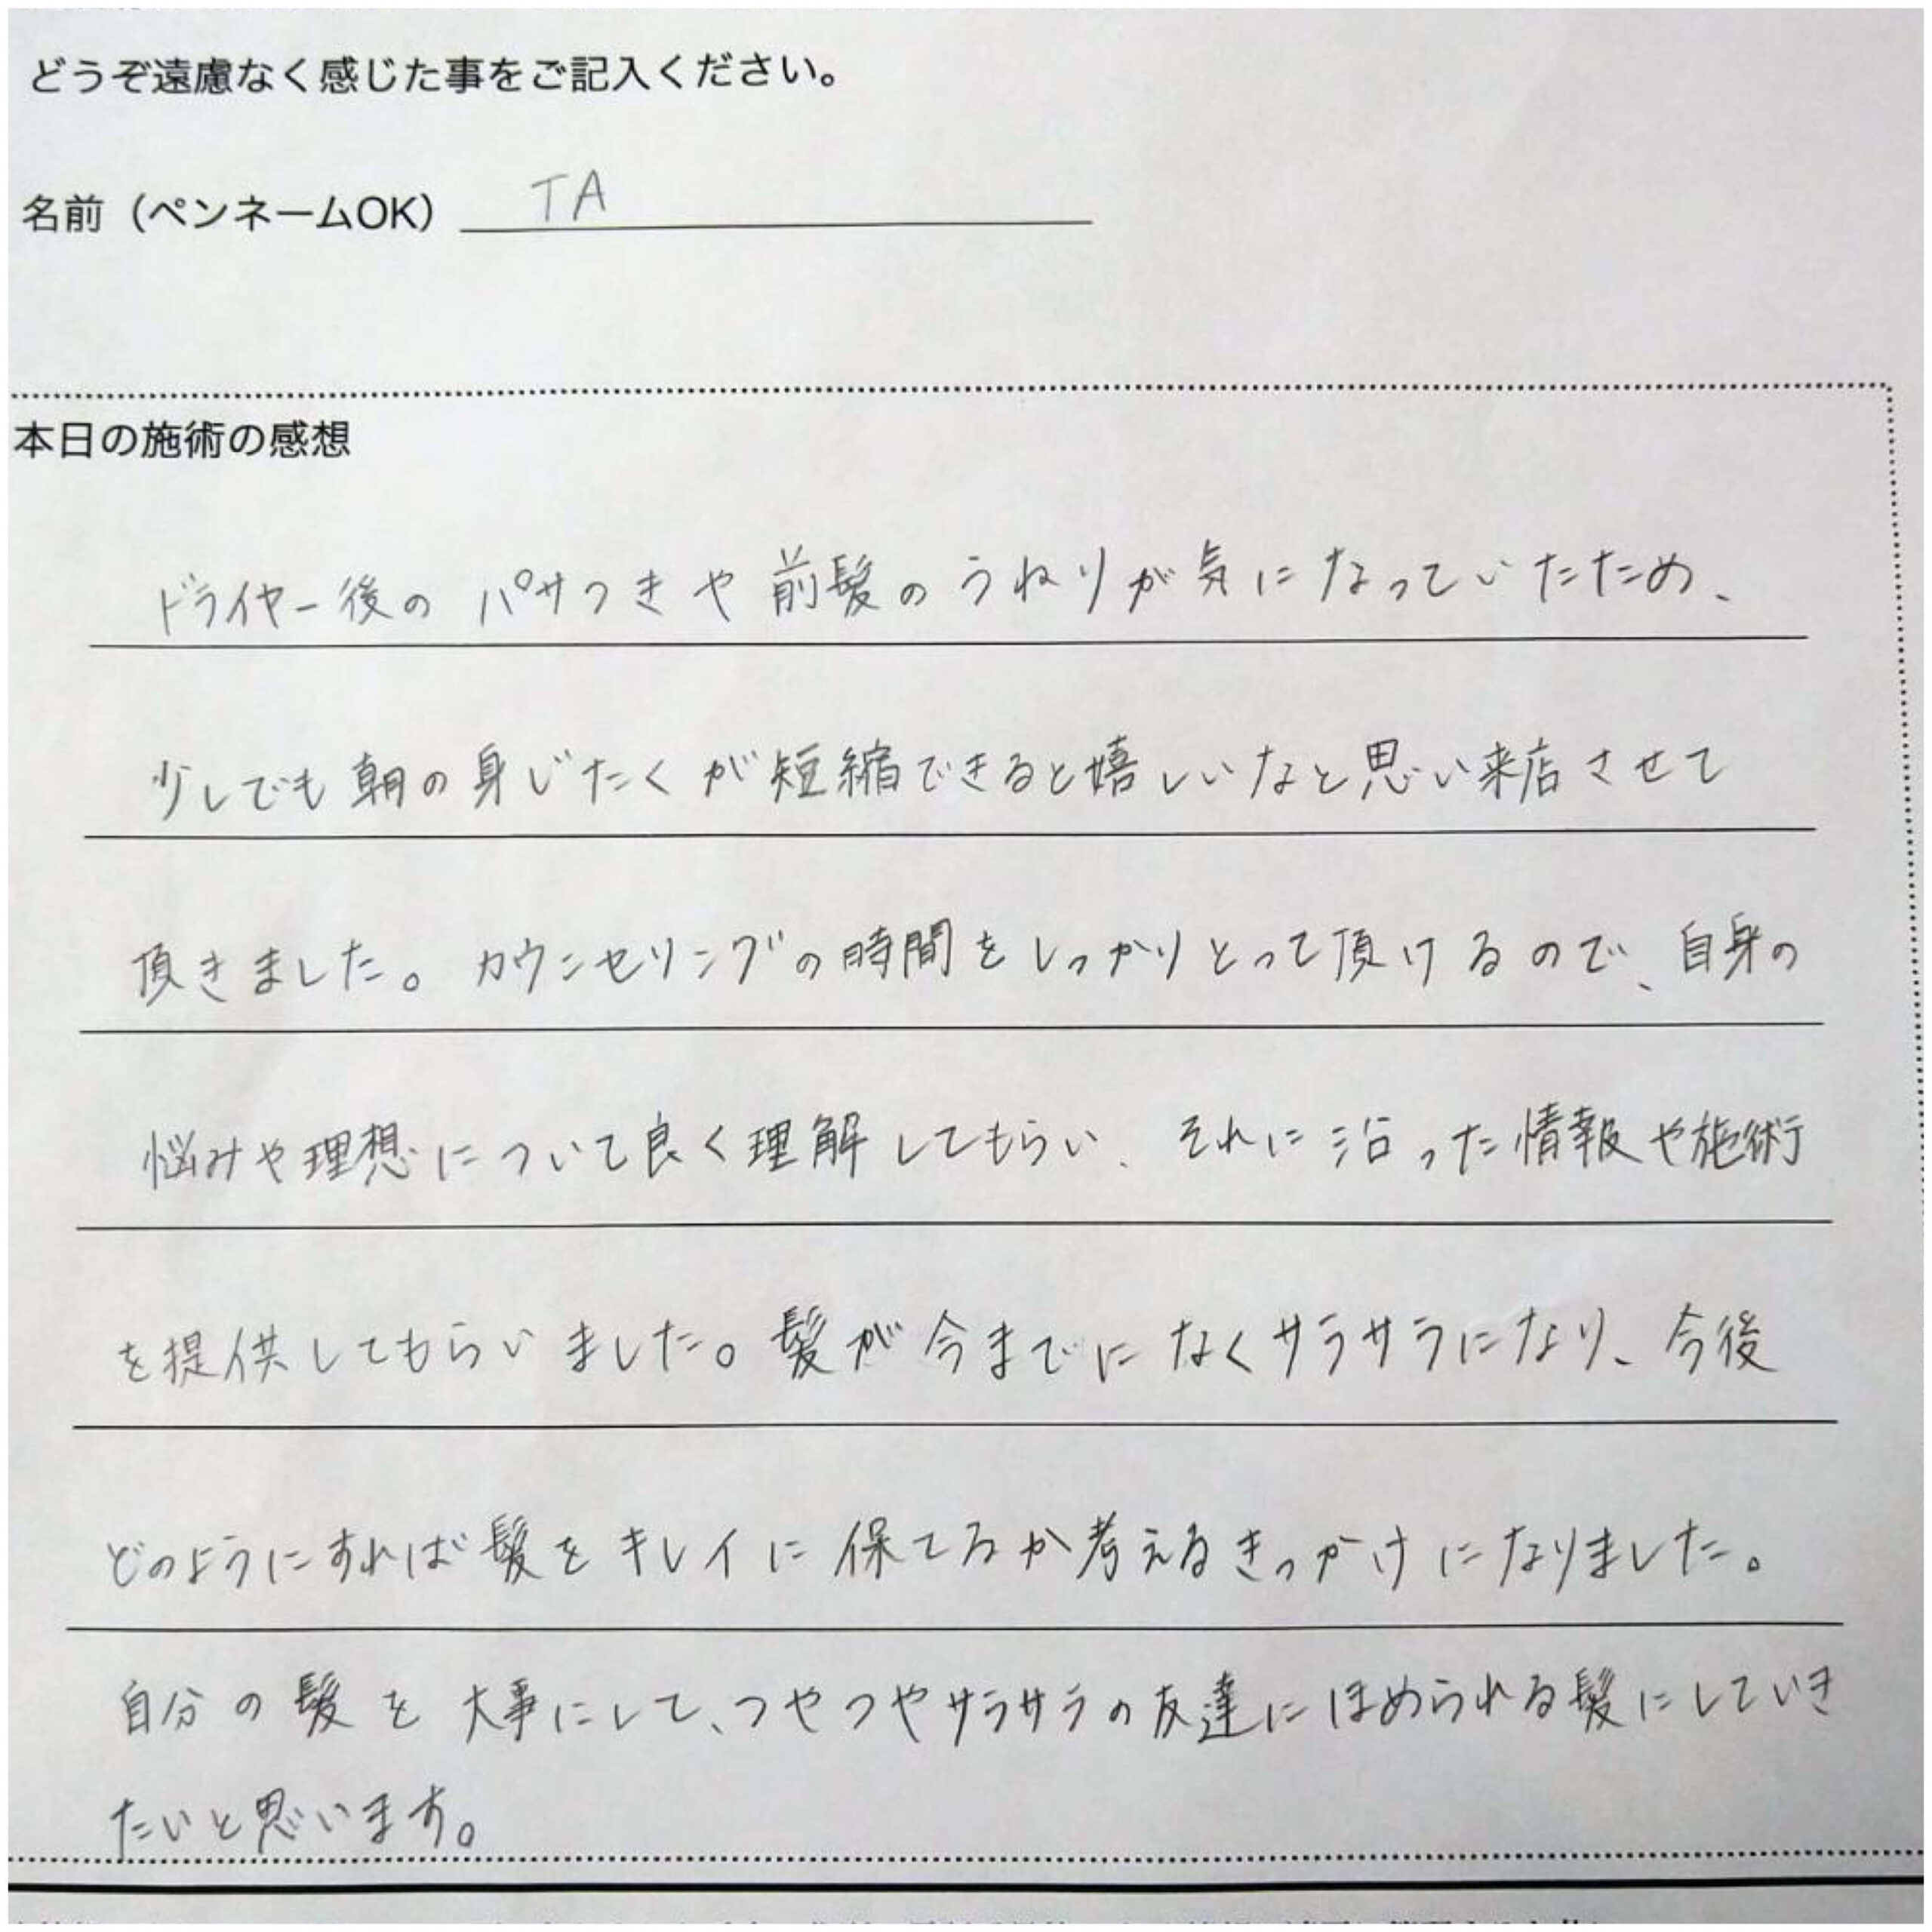 どうぞ遠慮なく感じた事をご記入ください。
名前（ペンネームOK） TA
本日の施術の感想
ドライヤー後のパサつきや前髪のうねりが気になっていたため、
少しでも朝の身じたくが短縮できると嬉しいなと思い来店させて
頂きました。カウンセリングの時間をしっかりとって頂けるので、自身の
悩みや理想について良く理解してもらい、それに沿った情報や施術
を提供してもらいました。髪が今までになくサラサラになり、今後
どのようにすれば髪をキレイに保てるか考えるきっかけになりました。
自分の髪を大事にして、つやつやサラサラの友達にほめられる髪にしていき
たいと思います。